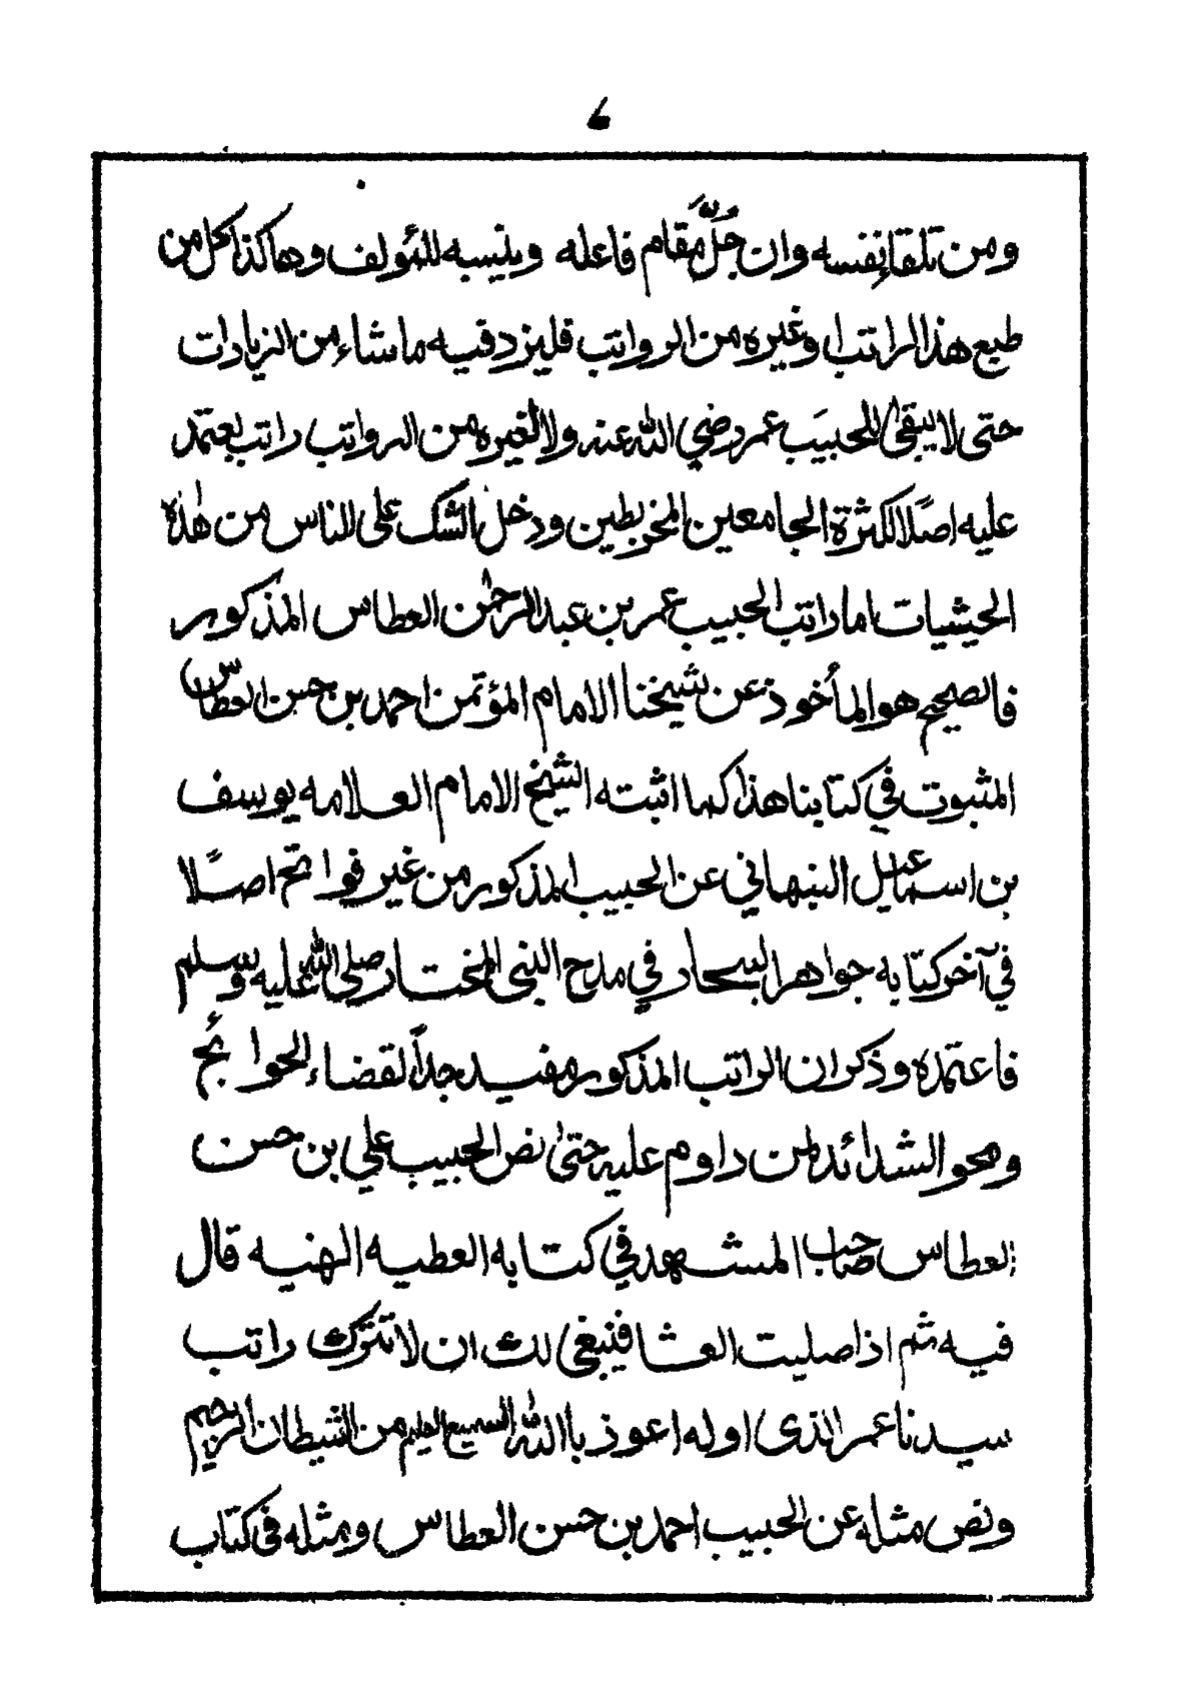 ٦
ومن تلقا نفسه وان جَلَّ مَقام فاعله وينسبه للمؤلف وهاكذا كل من
طبع هذالراتب اوغيره من الرواتب فليزد فيه ماشاء من الزيادات
حتى لا يبقىٰ للحبيَب عمر رضي الله عنه ولا لغيره من الرواتب راتب يعتمد
عليه اصلًا لكثرة الجامعين المخربطين ودخل الشك على للناس من هٰذه
الحيثيات اما راتب الحبيب عمر بن عبد الرحمٰن العطاس المذكور
فالصحيح هو المأخوذ عن شيخنا الامام المؤتمن احمد بن حسن العطاس
المثبوت في كتابنا هذا كما اثبته الشيخ الامام العلامه يوسف
بن اسماعيل النبهاني عن الحبيب المذكور من غير فواتح اصلًا
في آخر كتابه جواهر البحار في مدح النبي المختار صلى الله عليه وسلم
فاعتمده وذكر ان الراتب المذكور مفيد جداً لقضاء الحوائج
ومحو الشدائد لمن داوم عليه حتىٰ نص الحبيب علي بن حسن
العطاس صاحب المشهد في كتابه العطيه الهنيه قال
فيه ثم اذا صليت العشا فينبغي لك ان لا تترك راتب
سيدنا عمر الذى اوله اعوذ باالله السميع العليم من الشيطان الرجيم
ونص مثله عن الحبيب احمد بن حسن العطاس ومثله فى كتاب